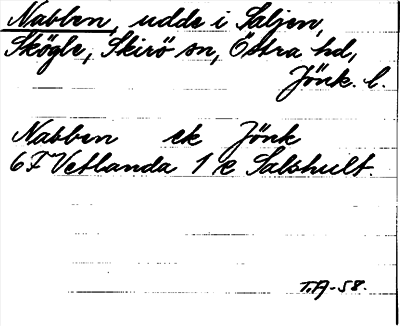 Nabben, udde i Saljen,
Skögle, Skirö sn, Östra hd,
Jönk. l.
Nabben ek Jönk
6F Vetlanda 1 e Salshult.
T.A-58.